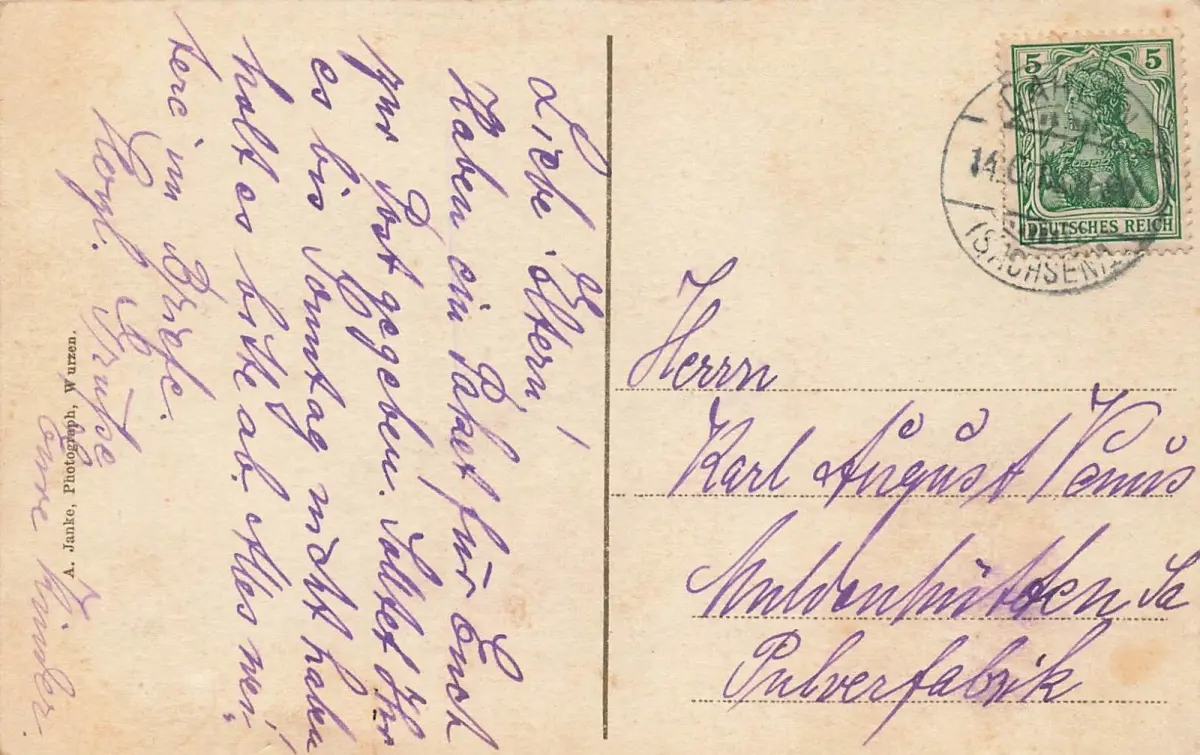 Liebe Eltern!
Haben ein Paket für Euch
zur Post gegeben. Solltet Ihr
es bis Sonntag nicht haben
holt es bitte ab. Alles wei-
tere im Briefe.
Herzl. Grüße
Eure Kinder.
A. Janke, Photograph, Wurzen.
5 5
DEUTSCHES REICH
(SACHSEN)
Herrn
Karl August Venus
Muldenhütten Sa
Pulverfabrik